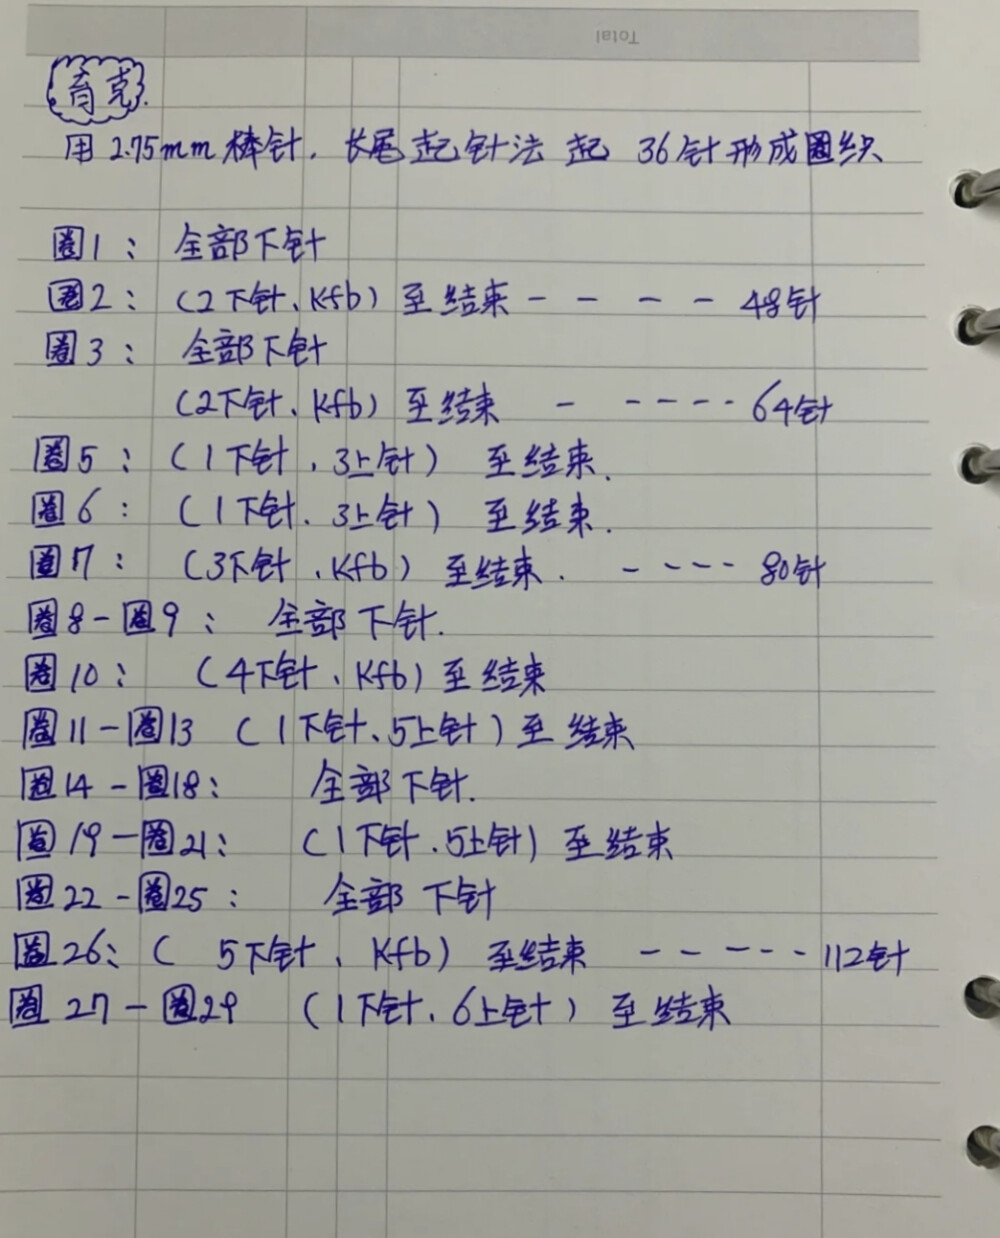 Total
育克.
用2.75mm棒针.长尾起针法 起 36针形成圈织
圈1: 全部下针
圈2: (2下针、Kfb) 至结束 - - - - 48针
圈3: 全部下针
(2下针、Kfb) 至结束 - - - - - 64针
圈5: (1下针.3上针) 至结束.
圈6: (1下针.3上针) 至结束.
圈7: (3下针.Kfb) 至结束. - - - - 80针
圈8-圈9: 全部下针.
圈10: (4下针、Kfb) 至结束
圈11-圈13 (1下针、5上针) 至结束
圈14-圈18: 全部下针.
圈19-圈21: (1下针.5上针) 至结束
圈22-圈25: 全部下针
圈26: ( 5下针、Kfb) 至结束 - - - - - 112针
圈27-圈29 (1下针、6上针) 至结束